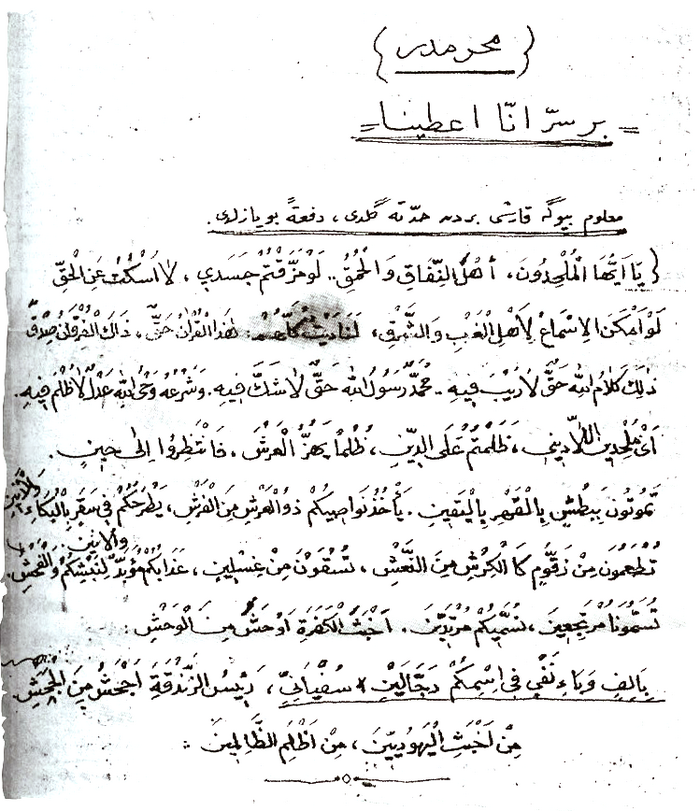 { محرمدر }
= برسرّ انّا اعطينا =
معلوم بيوك قارشى بردن حدّته گلدى ، دفعةً بويازلدى .
{ يَٓا اَيُّهَا الْمُلْحِدُونَ، أَهْلُ النِّفَاقِ وَالْحُمُقِ .. لَوْ مَزَّقْتُمْ جَسَدِي ، لَا اَسْكُتُ عَنِ الْحَقِّ
لَوْ اَمْكَنَ الْاِسْمَاعُ لِاَهْلِ الْغَرْبِ وَالشَّرْقِ، لَنَادَيْتُ : هٰذَا الْقُرْاٰنُ حَقٌّ ، ذَاكَ الْفُرْقَانُ صِدْقٌ
ذٰلِكَ كَلَامُ اللّٰهِ حَقٌّ لَا رَيْبَ فِيهِ .. مُحَمَّدٌ رَسُولُ اللّٰهِ حَقٌّ لَا شَكَّ فِيهِ . وَشَرْعُهُ وَحْىُ اللّٰهِ عَدْلٌ لَا ظُلْمَ فِيهِ .
اَىْ مُلْحِدِينَ اللَّادِينِي ، ظَلَمْتُمْ عَلَى الدِّينِ ، ظُلْمًا يَهُزُّ الْعَرْشَ ، فَانْتَظِرُوا اِلٰى حِينٍ .
تَمُوتُونَ بِبَطْشٍ بِالْقَهْرِ بِالْيَقِينِ . يَأْخُذُ نَوَاصِيكُمْ ذُو الْعَرْشِ مِنَ الْفَرْشِ ، يَطْرَحُكُمْ فِى سَقَرٍ بِالْبُكَاءِ
وَالْاَنِينِ
تُطْعَمُونَ مِنْ زَقُّومٍ كَالْكِرْشِ مِنَ النَّعْشِ ، تُسْقَوْنَ مِنْ غِسْلِينٍ ، عَذَابُكُمْ مُؤَبَّدٌ وَالْفُحْشِ .
تُسَمُّونَا مُرْتَجِعِينَ ، نُسَمِّيكُمْ مُرْتَدِّينَ . اَخْبَثُ الْكَفَرَةِ اَوْحَشُ مِنَ الْوَحْشِ :
بِاَلِفٍ وَبَاءٍ نَفْيٍ فِى اِسْمِكُمْ دَجَّالَيْنِ سُفْيَانِىٍّ ، رَئِيسُ الزَّنْدَقَةِ اَجْحَشُ مِنَ الْجَحْشِ
مِنْ اَخْبَثِ الْيَهُودِيِّينَ ، مِنْ اَظْلَمِ الظَّالِمِينَ :